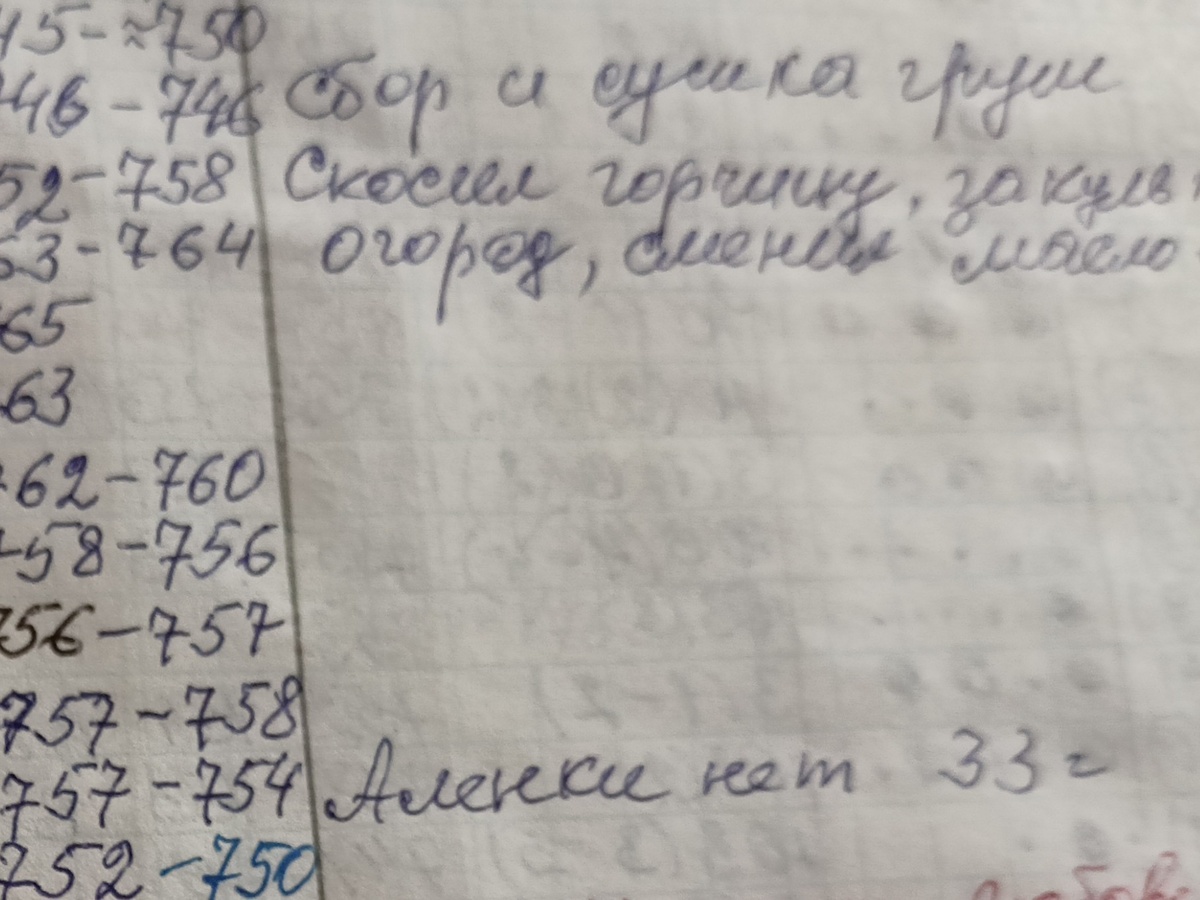 45-≈750
746-746 Сбор и сушка груш
752-758 Скосил горчину, закуль
763-764 огород, сменил масло
765
763
762-760
758-756
756-757
757-758
757-754 Аленки нет 33 г
752-750